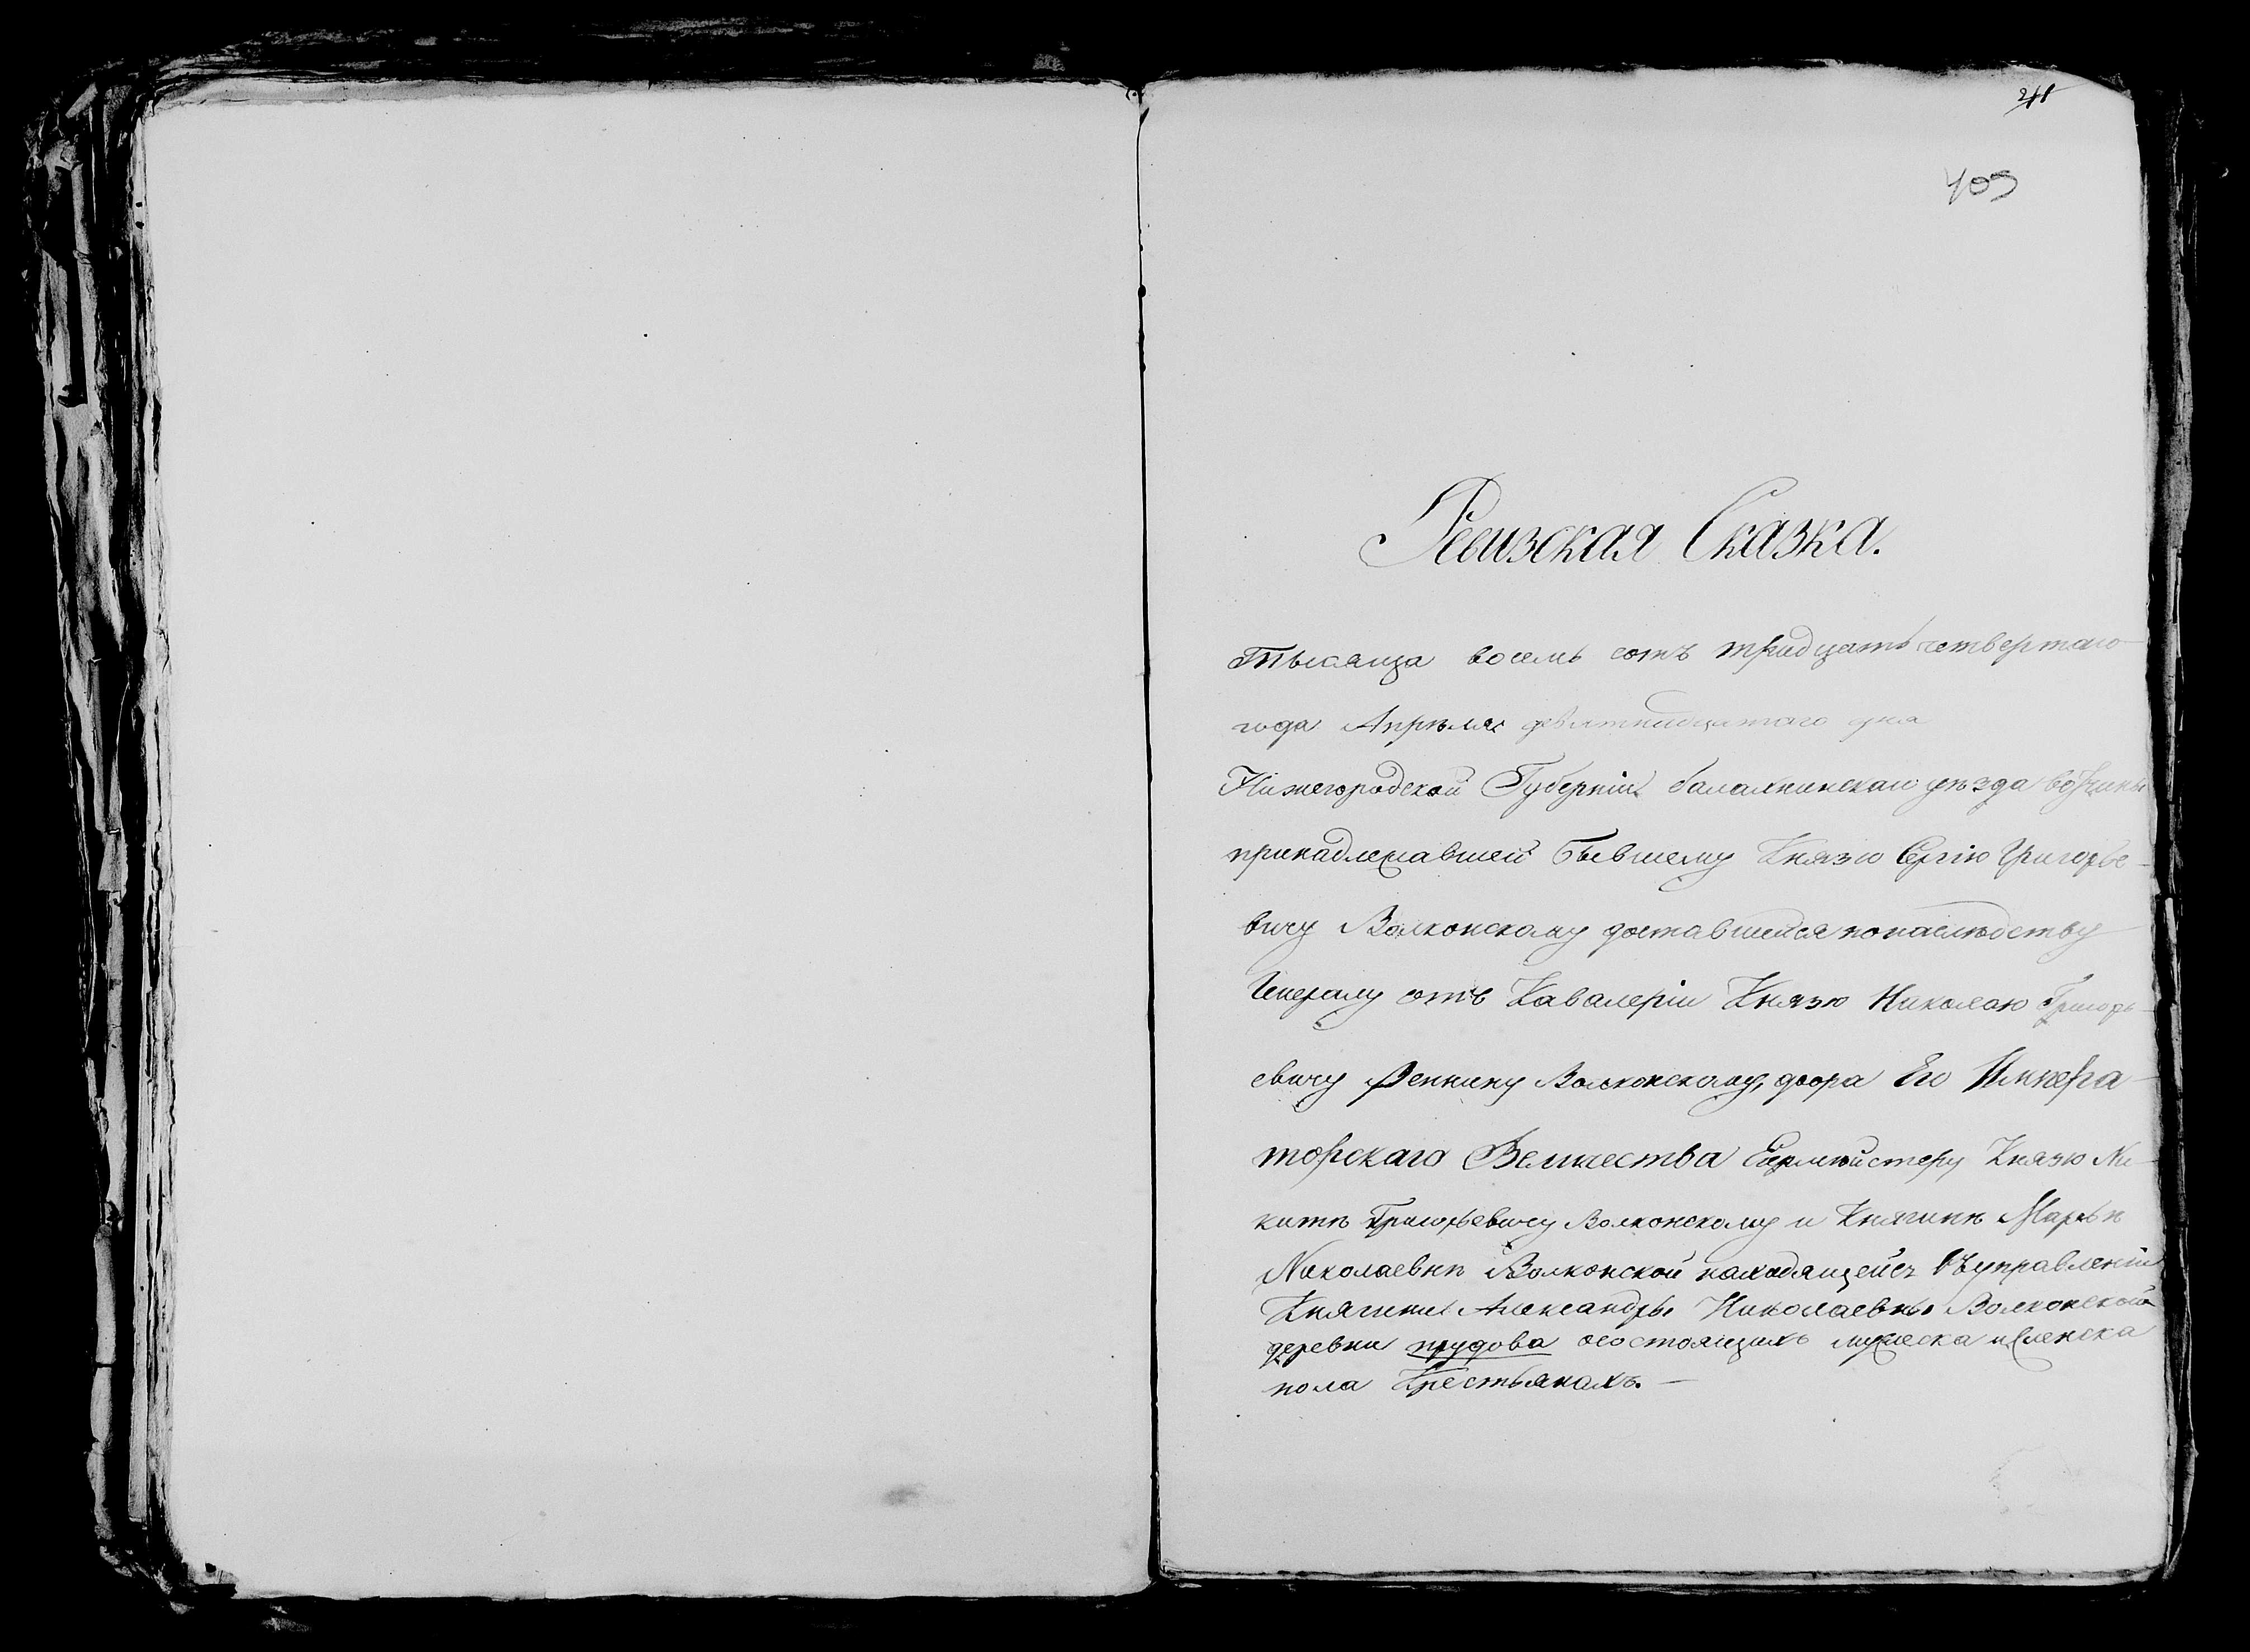 409
Ревизская Сказка.
Тысяща восемь сотъ тридцать четвертаго
года Апрѣля девятнадцатаго дня
Нижегородской Губерніи балахнинскаго уѣзда вотчины
принадлежавшей бывшему Князю Сергію Григорье-
вичу Волконскому доставшейся по наслѣдству
Генералу отъ Кавалеріи Князю Николаю Григорь-
евичу Репнину Волконскому, двора Его Импера-
торскаго Величества Егермейстеру Князю Ни-
китѣ Григорьевичу Волконскому и Княгинѣ Марьѣ
Николаевнѣ Волконской находящейся въ управленіи
Княгини Александры Николаевны Волконской
деревни прудова о состоящихъ мужеска и женска
пола Крестьянахъ. —